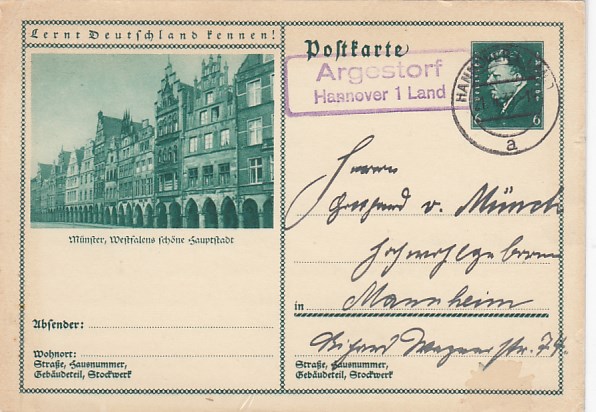 Lernt Deutschland kennen!
Postkarte
Argestorf
Hannover 1 Land
HANNOVER
a
6 6
Münster, Westfalens schöne Hauptstadt
Herrn
v. Münch
Hochwohlgeboren
in Mannheim
Richard Wagner str. 74.
Absender:
Wohnort:
Straße, Hausnummer,
Gebäudeteil, Stockwerk
Straße, Hausnummer,
Gebäudeteil, Stockwerk